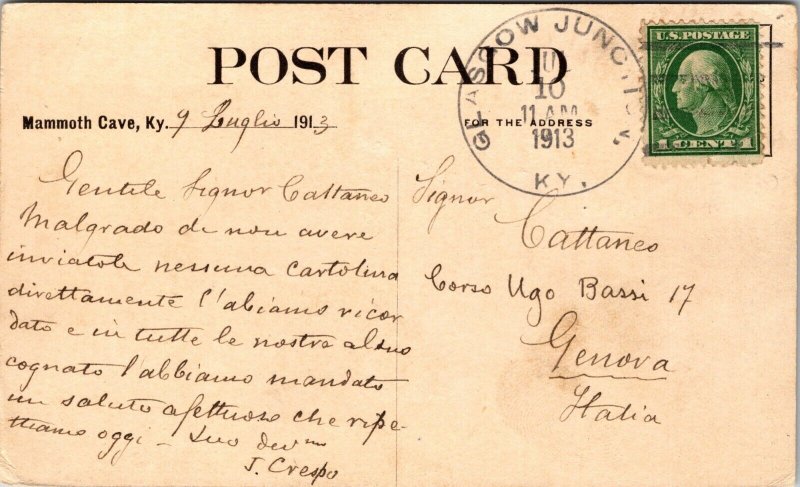 POST CARD
Mammoth Cave, Ky. 9 Luglio 1913
FOR THE ADDRESS
GLASGOW JUNCTION,
10
11 AM
1913
KY.
U.S. POSTAGE
1 CENT 1
Gentile Signor Cattaneo
Malgrado di non avere
inviatole nessuna cartolina
direttamente l'abiamo ricor
dato e in tutte le nostre al suo
cognato l'abbiamo mandato
un saluto afettuoso che ripe-
tiamo oggi - Suo dev.mo
J. Crespo
Signor
Cattaneo
Corso Ugo Bassi 17
Genova
Italia